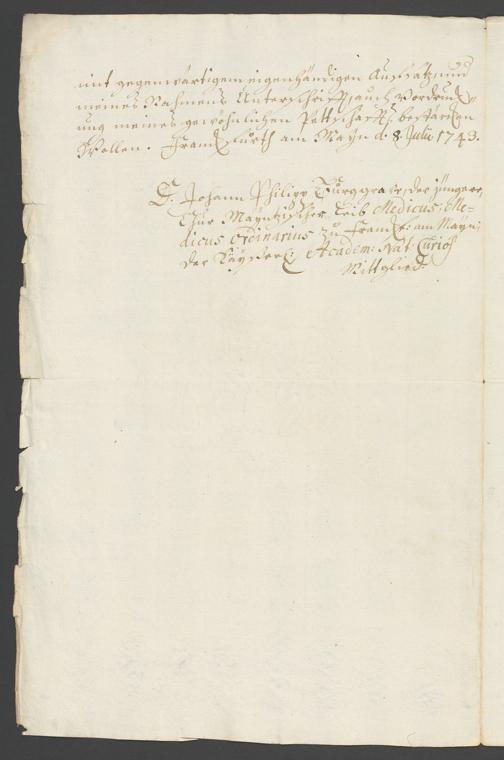 mit gegenwärtigem eigenhändigen Auffsatz und
meines Nahmens Unterschrifft, auch Vordruck-
ung meines gewöhnlichen Pettschaffts bestärcken
Wollen. Franckfurth am Mayn d. 8. Julii 1743.
D. Johann Philipp Burggrave, der jüngere,
Chur Mayntzischer Leib Medicus, Me-
dicus Ordinarius zu Franckf: am Mayn,
der Kayserl: Academ: Nat: Curios
Mittglied.